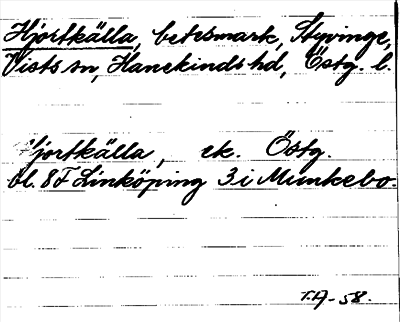 Hjortkälla, betesmark, Styvinge,
Vists sn, Hanekinds hd, Östg. l.
Hjortkälla, ek. Östg.
bl. 8F Linköping 3i Munkebo.
T.A-58.